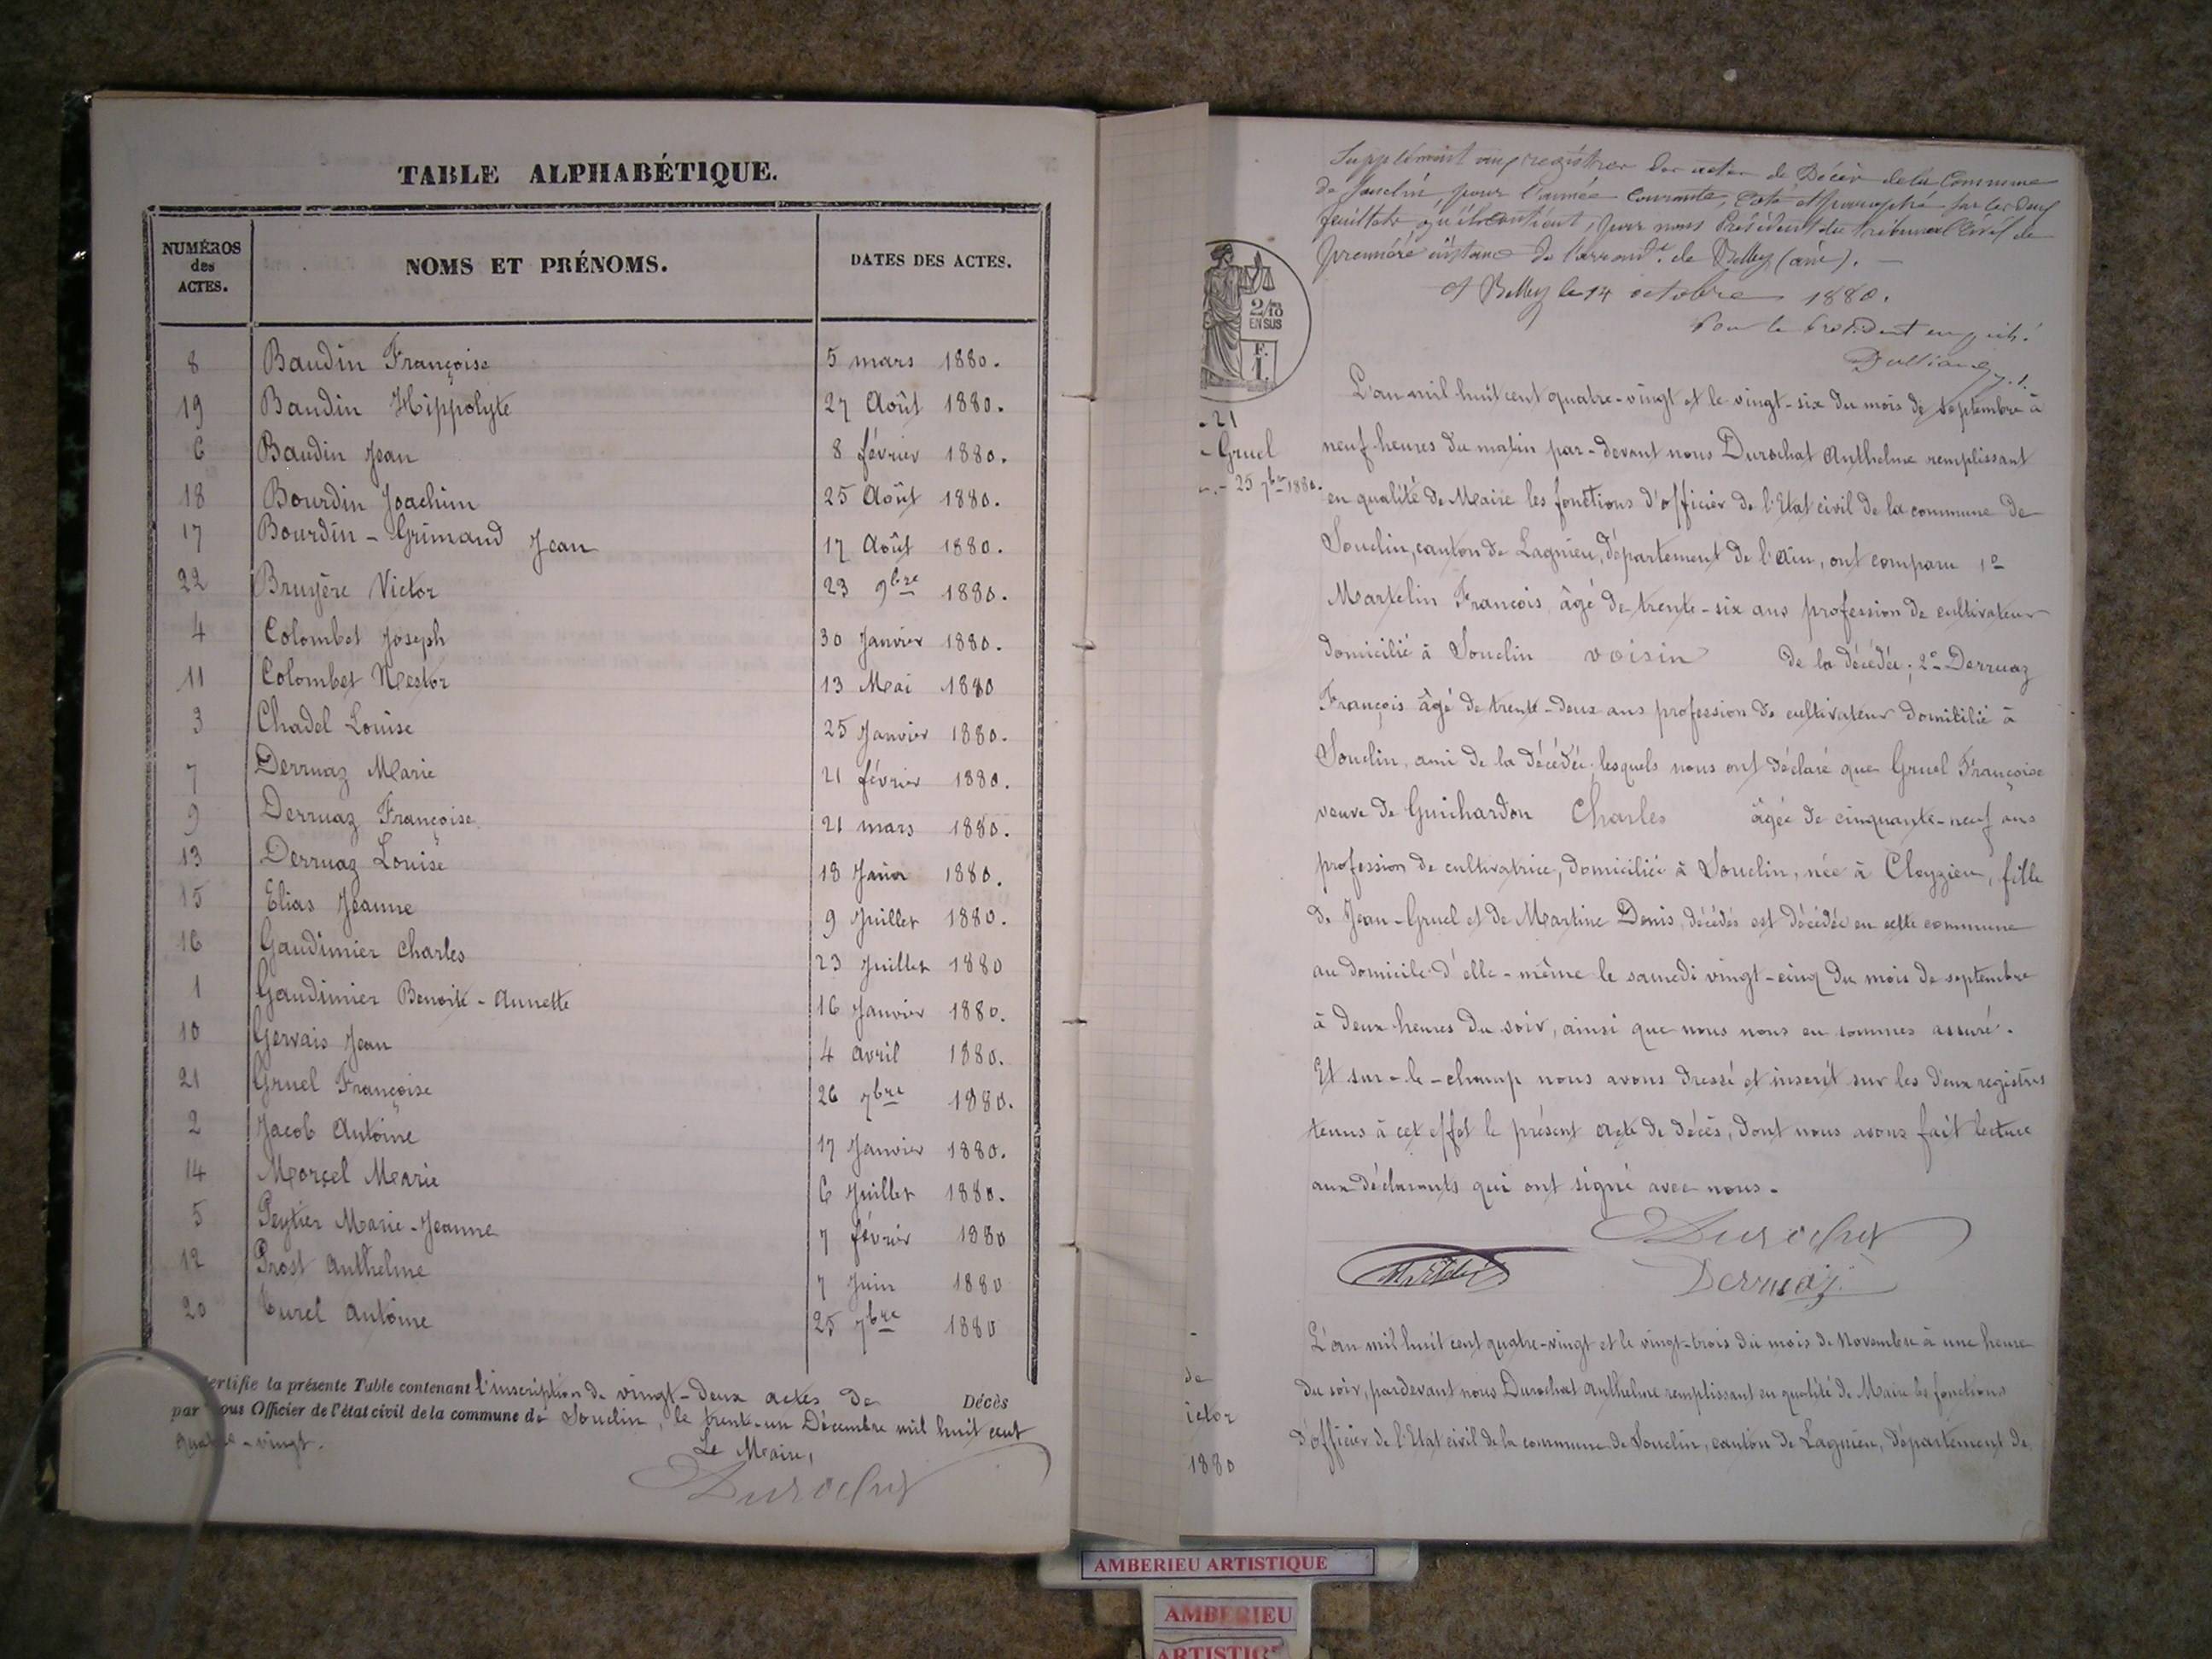 TABLE ALPHABÉTIQUE.
NUMÉROS des ACTES. NOMS ET PRÉNOMS. DATES DES ACTES.
8 Baudin Françoise 5 mars 1880.
19 Baudin Hippolyte 27 Août 1880.
6 Baudin Jean 8 février 1880.
18 Bourdin Joachim 25 Août 1880.
17 Bourdin - Grimaud Jean 17 Août 1880.
22 Bruyère Victor 23 9bre 1880.
4 Colombet Joseph 30 Janvier 1880.
11 Colombet Nestor 13 Mai 1880
3 Chadel Louise 25 Janvier 1880.
7 Derruaz Marie 21 février 1880.
9 Derruaz Françoise 21 mars 1880.
13 Derruaz Louise 18 1880.
15 Elias Jeanne 9 Juillet 1880.
16 Gaudimier Charles 23 Juillet 1880
1 Gaudimier Benoite - Annette 16 Janvier 1880.
10 Gervais Jean 4 avril 1880.
21 Gruel Françoise 26 7bre 1880.
2 Jacob Antoine 17 Janvier 1880.
14 Marie 6 Juillet 1880.
5 Peytier Marie-Jeanne 7 février 1880
12 Prost Anthelme 7 Juin 1880
20 Antoine 25 7bre 1880
Certifie la présente Table contenant l'inscription de vingt-deux actes de Décès
par nous Officier de l'état civil de la commune de Souclin, le trente-un Décembre mil huit cent
quatre-vingt.
Le Maire,
Durochat
Supplément aux registres des actes de Décès de la Commune
de Souclin, pour l'année courante, coté et paraphé sur les deux
feuillets qu'il contient, par nous Président du tribunal Civil de
première instance de l'arrondt. de Belley (ain). —
A Belley le 14 octobre 1880.
Pour le Président
2/10
EN SUS
F.
1.
- 21
- Gruel
- 25 7bre 1880.
L'an mil huit cent quatre-vingt et le vingt-six du mois de septembre à
neuf heures du matin par-devant nous Durochat Anthelme remplissant
en qualité de Maire les fonctions d'officier de l'Etat civil de la commune de
Souclin, canton de Lagnieu, département de l'Ain, ont comparu 1º
Martelin François, âgé de trente-six ans profession de cultivateur
domicilié à Souclin voisin de la décédée; 2º Derruaz
François âgé de trente-deux ans profession de cultivateur domicilié à
Souclin, ami de la décédée lesquels nous ont déclaré que Gruel Françoise
veuve de Guichardon Charles âgée de cinquante-neuf ans
profession de cultivatrice, domiciliée à Souclin, née à Cleyzieu, fille
de Jean-Gruel et de Martine Denis, décédés est décédée en cette commune
au domicile d'elle-même le samedi vingt-cinq du mois de septembre
à deux heures du soir, ainsi que nous nous en sommes assuré.
Et sur-le-champ nous avons dressé et inscrit sur les deux registres
tenus à cet effet le présent acte de décès, dont nous avons fait lecture
aux déclarants qui ont signé avec nous.
Durochat
Derruaz
de
ictor
1880
L'an mil huit cent quatre-vingt et le vingt-trois du mois de Novembre à une heure
du soir, pardevant nous Durochat Anthelme remplissant en qualité de Maire les fonctions
d'officier de l'Etat civil de la commune de Souclin, canton de Lagnieu, département de
AMBERIEU ARTISTIQUE
AMBERIEU
ARTISTIQUE